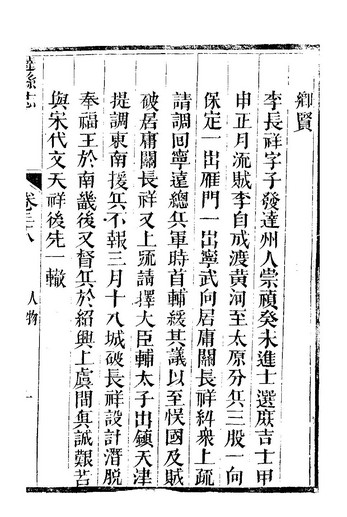 鄉賢
李長祥字子發達州人崇禎癸未進士選庶吉士甲
申正月流賊李自成渡黃河至太原分兵三股一向
保定一出雁門一出寧武向居庸關長祥糾衆上疏
請調回寧遠總兵軍時首輔緩其議以至悞國及賊
破居庸關長祥又上疏請擇大臣輔太子出鎮天津
提調東南援兵不報三月十八城破長祥設計潛脫
奉福王於南畿後又督兵於紹興上虞間眞誠艱苦
與宋代文天祥後先一轍
達縣志
卷三八
人物
一